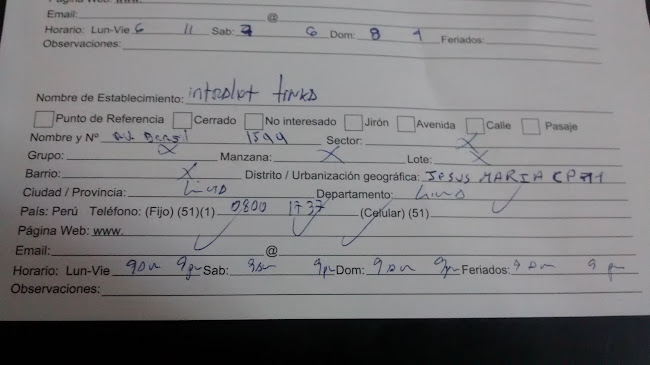 Página Web: www.
Email: @
Horario: Lun-Vie 6 11 Sab: 7 6 Dom: 8 9 Feriados:
Observaciones:
Nombre de Establecimiento: intralot tinka
Punto de Referencia Cerrado No interesado Jirón Avenida Calle Pasaje
Nombre y Nº Av. Brasil 1599 Sector: X
Grupo: X Manzana: X Lote: X
Barrio: X Distrito / Urbanización geográfica: JESUS MARIA
Ciudad / Província: Lima Departamento: Lima
País: Perú Teléfono: (Fijo) (51)(1) 0800 1737 (Celular) (51)
Página Web: www.
Email: @
Horario: Lun-Vie 9am 9pm Sab: 9am 9pm Dom: 9am 9pm Feriados: 9am 9pm
Observaciones: